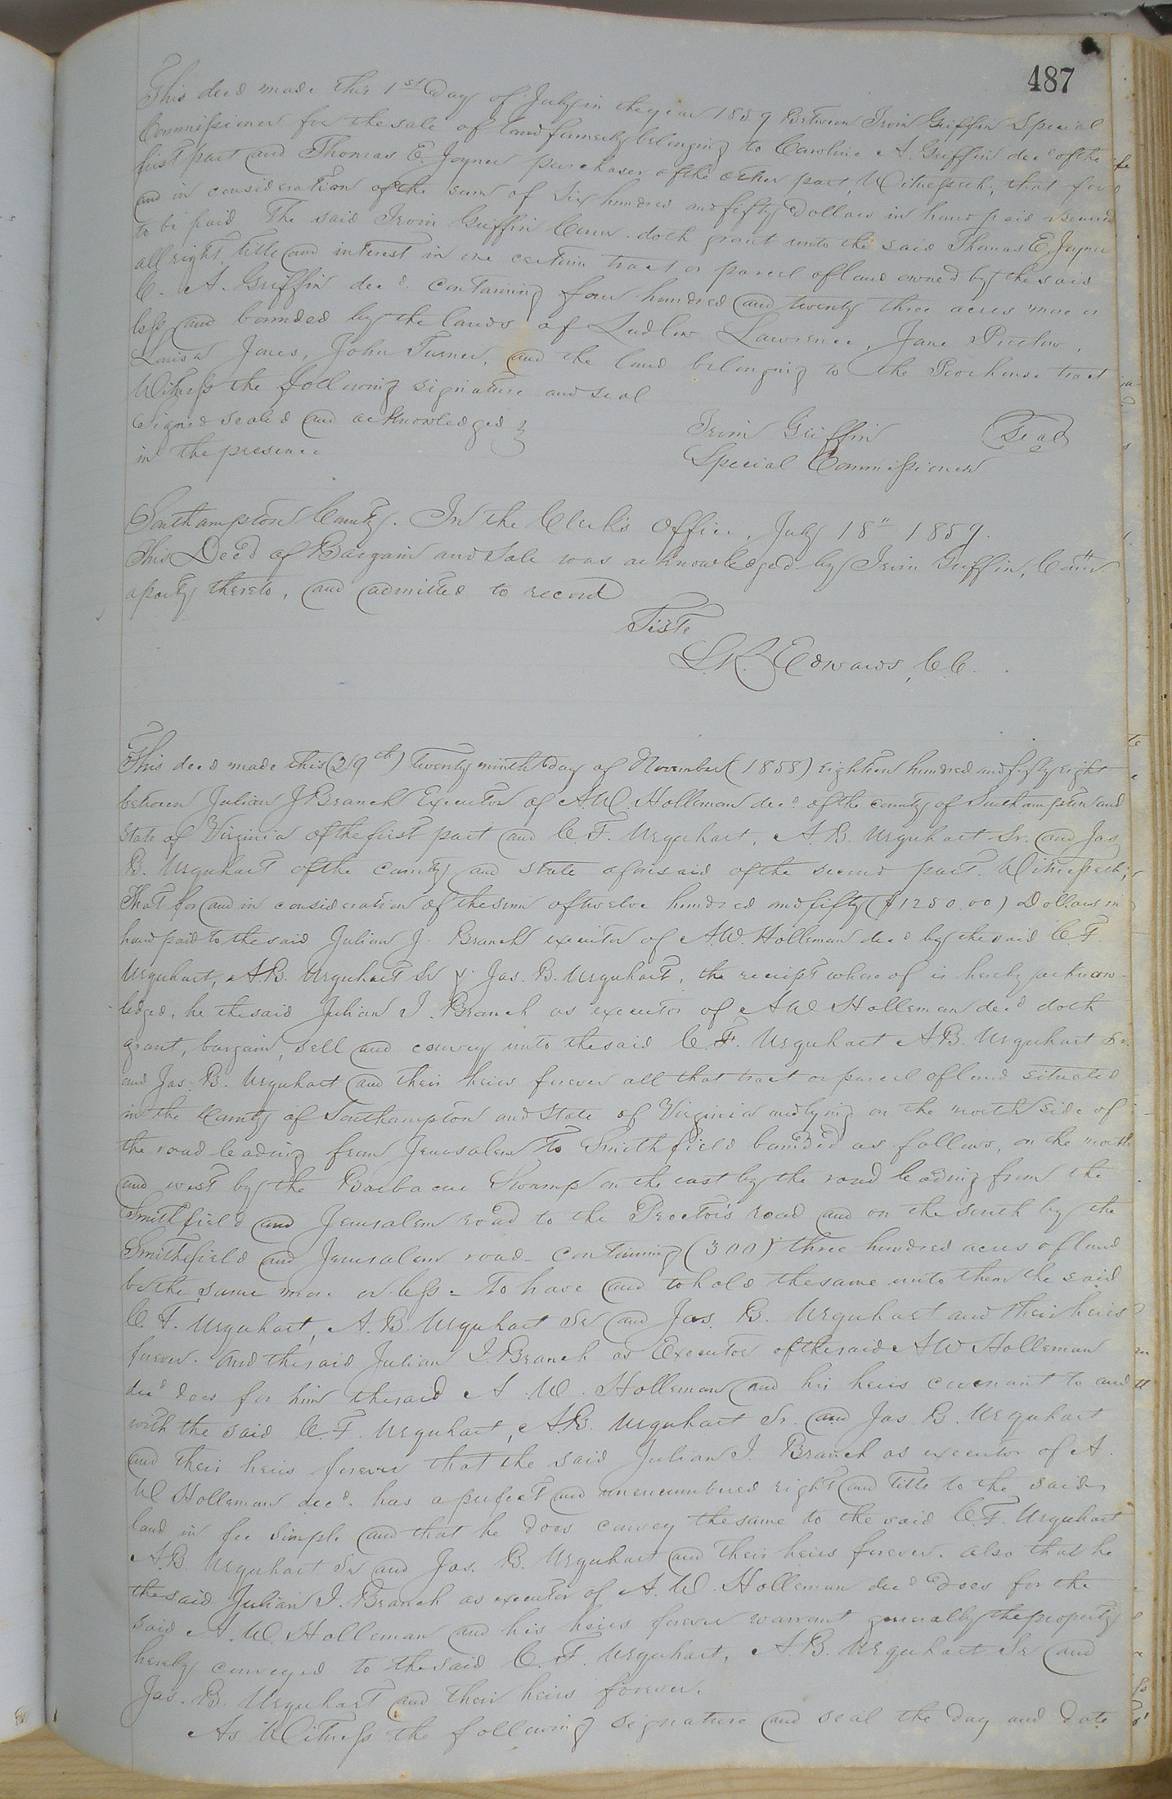 487
This deed made this 1st Day of July in the year 1859 Between Irvin Griffin Special
Commissioner for the sale of land formerly belonging to Caroline A. Griffin decd of the
first part and Thomas E. Joyner purchaser of the other part, Witnesseth; that for
and in consideration of the sum of Six hundred and fifty Dollars in hand paid
to be paid The said Irvin Griffin Comr. doth grant unto the said Thomas E. Joyner
all right, title and interest in one certain tract or parcel of land owned by the said
C. A. Griffin decd. containing four hundred and twenty three acres more or
less and bounded by the lands of Ludlow Lawrence, Jane
Jones, John Turner, and the land belonging to the tract
Witness the following signature and seal
Signed sealed and acknowledged }
in the presence
Irvin Griffin (Seal)
Special Commissioner
Southampton County. In the Clerk's Office, July 18" 1859.
This Deed of Bargain and Sale was acknowledged by Irvin Griffin, Comr
a party thereto, and admitted to record
Teste
L.R. Edwards, C.C.
This deed made this (29th) twenty ninth day of November (1858) eighteen hundred and fifty eight
between Julian J Branch Executor of A.W. Holleman decd of the county of Southampton and
State of Virginia of the first part and C F. Urquhart, A. B Urquhart Sr. and Jas
B. Urquhart of the county and state aforesaid of the second part. Witnesseth;
That for and in consideration of the sum of twelve hundred and fifty ($1250.00) Dollars in
hand paid to the said Julian J. Branch executor of A.W. Holleman decd by the said C F
Urquhart, A.B. Urquhart Sr & Jas. B. Urquhart, the receipt whereof is hereby acknow-
ledged, he the said Julian J. Branch as executor of A W Holleman decd doth
grant, bargain, sell and convey unto the said C. F. Urquhart A B. Urquhart Sr.
and Jas. B. Urquhart and their heirs forever all that tract or parcel of land situated
in the County of Southampton and State of Virginia and lying on the north side of
the road leading from Jerusalem to Smithfield bounded as follows, on the north
and west by the Barbacue Swamp on the east by the road leading from the
Smithfield and Jerusalem road to the Proctor's road and on the south by the
Smithfield and Jerusalem road - containing (300) three hundred acres of land
be the same more or less - To have and to hold the same unto them the said
C. F. Urquhart, A. B Urquhart Sr and Jas. B. Urquhart and their heirs
forever. And the said Julian J. Branch as Executor of the said A W Holleman
decd does for him the said A. W. Holleman and his heirs covenant to and
with the said C. F. Urquhart, A.B. Urquhart Sr. and Jas. B. Urquhart
and their heirs forever that the said Julian J. Branch as executor of A.
W Holleman decd. has a perfect and unencumbered right and title to the said
land in fee simple and that he does convey the same to the said C. F. Urquhart
A.B. Urquhart Sr and Jas. B. Urquhart and their heirs forever. Also that he
the said Julian J. Branch as executor of A. W. Holleman decd does for the
said A. W. Holleman and his heirs forever warrant generally the property
hereby conveyed to the said C. F. Urquhart, A. B. Urquhart Sr and
Jas. B. Urquhart and their heirs forever.
As Witness the following signature and seal the day and date